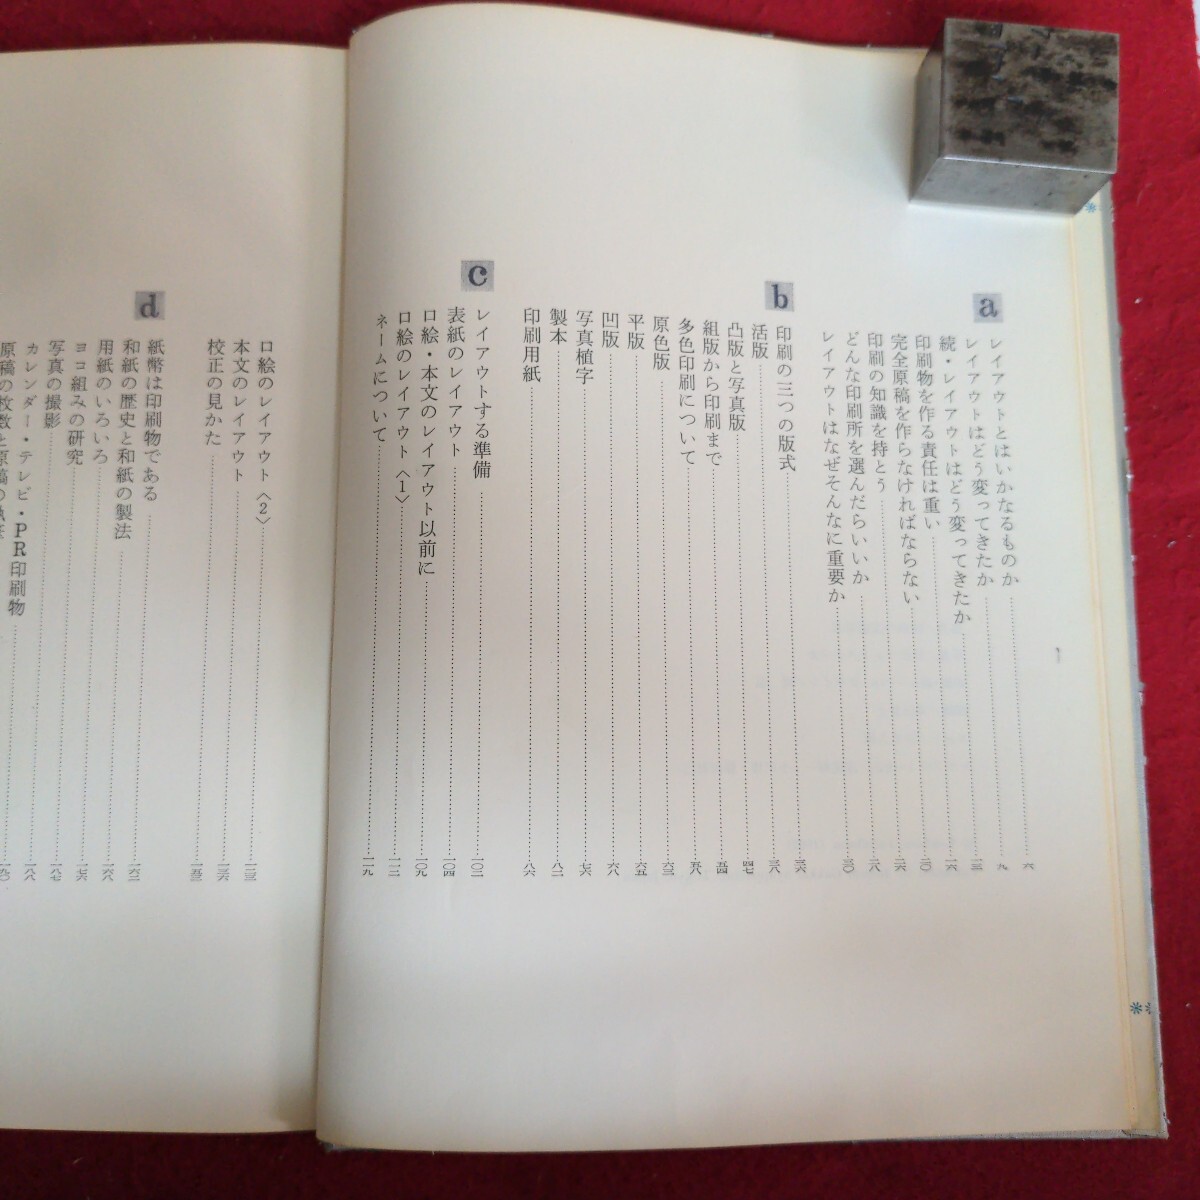 a
レイアウトとはいかなるものか 六
レイアウトはどう変ってきたか 九
続・レイアウトはどう変ってきたか 一三
印刷物を作る責任は重い 一六
完全原稿を作らなければならない
印刷の知識を持とう 二六
どんな印刷所を選んだらいいか 二八
レイアウトはなぜそんなに重要か 三〇
b
印刷の三つの版式 三六
活版 三八
凸版と写真版 四七
組版から印刷まで 五四
多色印刷について 五八
原色版 六三
平版 六五
凹版 六八
写真植字 七六
製本 八二
印刷用紙 八六
c
レイアウトする準備 一〇二
表紙のレイアウト 一〇四
口絵・本文のレイアウト以前に 一〇九
口絵のレイアウト〈1〉 一一二
ネームについて 一一九
口絵のレイアウト〈2〉 一二三
本文のレイアウト 一三六
校正の見かた 一五三
d
紙幣は印刷物である
和紙の歴史と和紙の製法 一六二
用紙のいろいろ 一六八
ヨコ組みの研究 一七六
写真の撮影 一八七
カレンダー・テレビ・PR印刷物 一八八
原稿の枚数と原稿の 一九〇